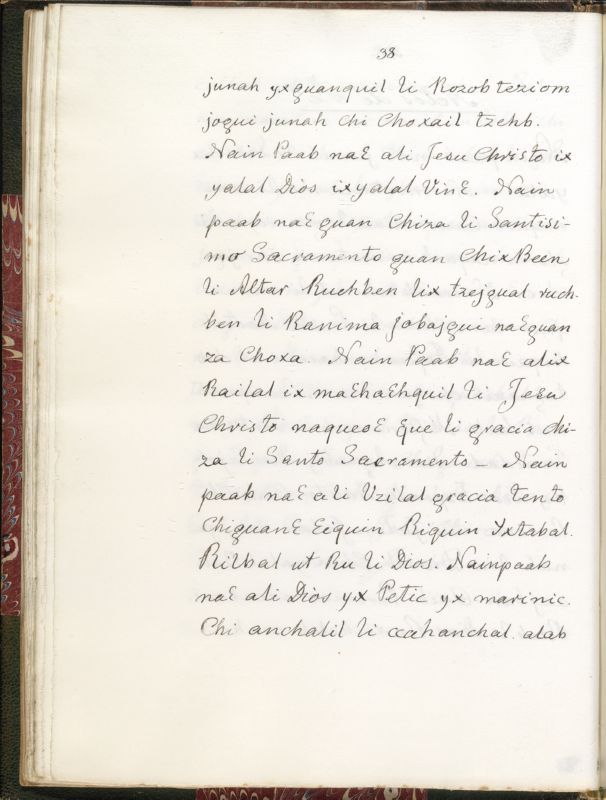 38
junah yx guanquil li Rozob teziom
jogui junah chi Choxail tzehb.
Nain Paab naɛ ali Jesu Christo ix
yalal Dios ix yalal Vinɛ. Nain
paab naɛ guan Chiza li Santisi-
mo Sacramento guan Chix Been
li Altar Ruchben lix tzejgual ruch-
ben li Ranima jobajgui naɛ guan
za Choxa. Nain Paab naɛ alix
Railal ix maɛhaɛhquil li Jesu
Christo naqueoɛ que li gracia chi-
za li Santo Sacramento - Nain
paab naɛ a li Uzilal gracia tento
Chiguanɛ Eiquin Riquin Yxtabal.
Rilbal ut Ru li Dios. Nainpaab
naɛ ali Dios yx Petic yx marinic.
Chi anchalil li ccahanchal. alab